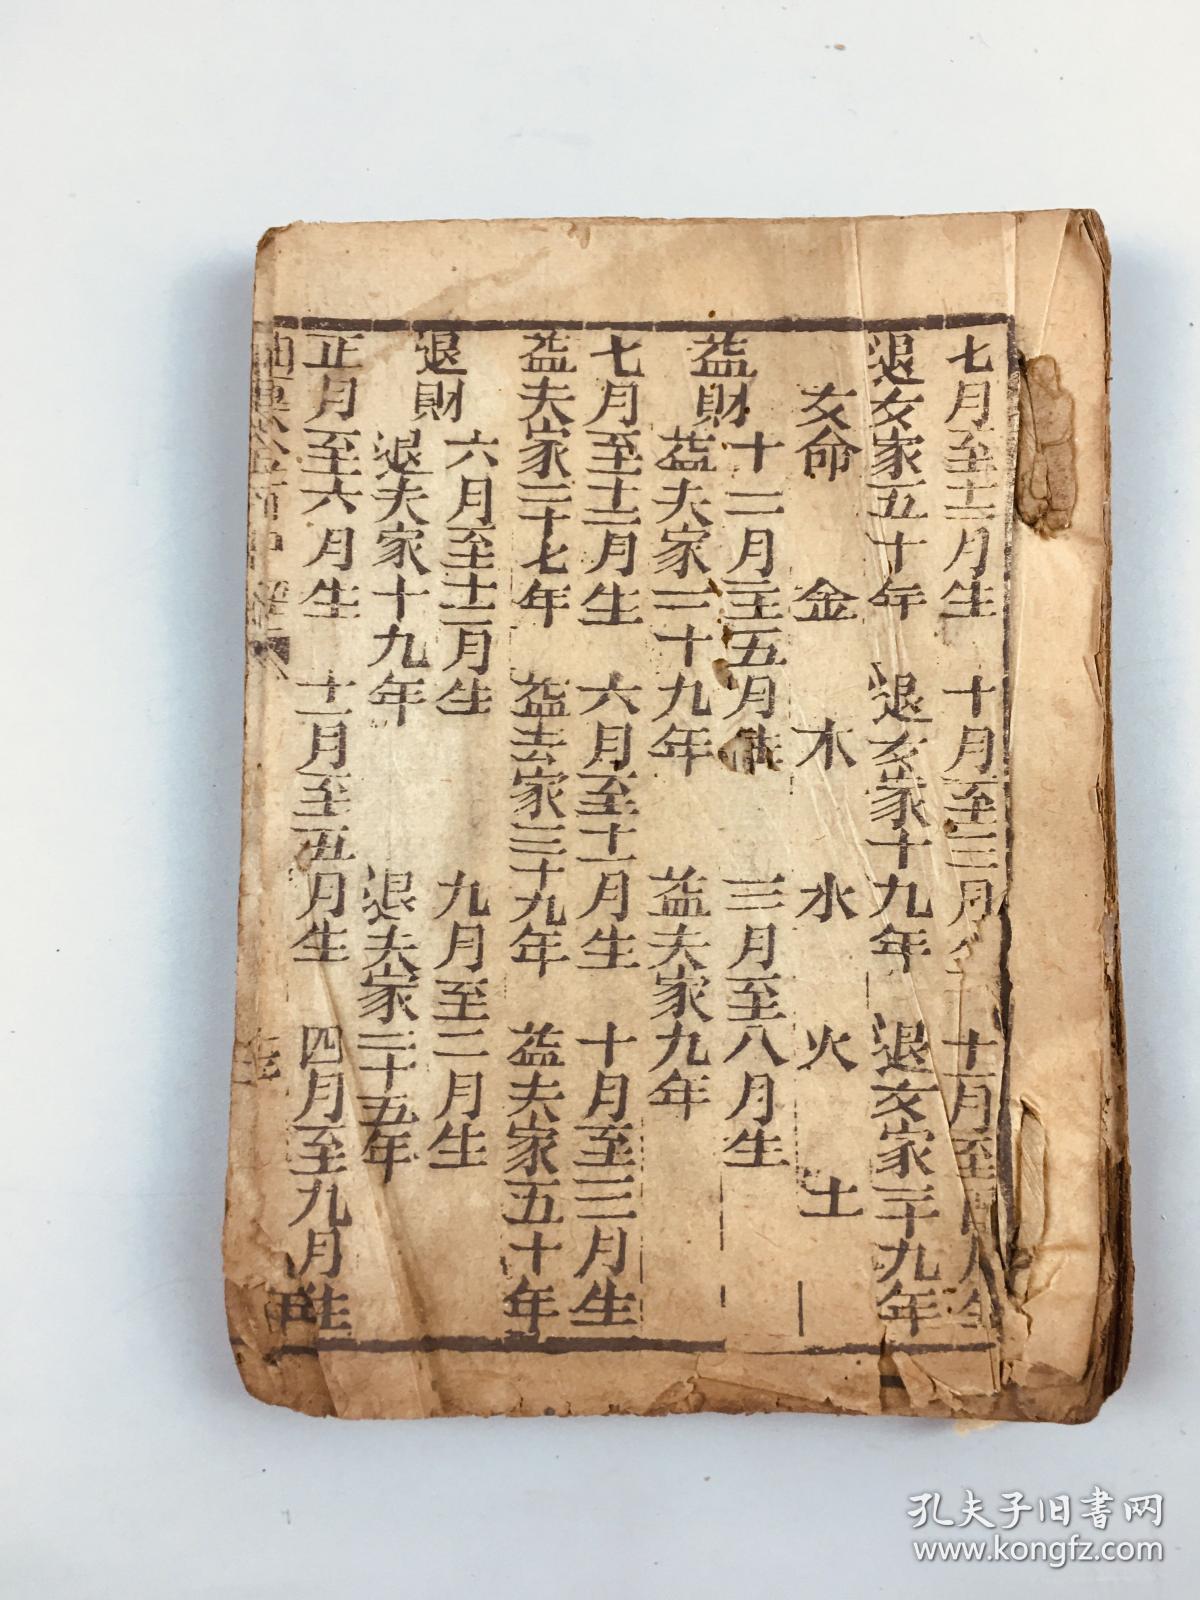 七月至十二月生　十月至三月生　十一月至四月生
退女家五十年　退女家十九年　退女家三十九年
女命　金　木　水　火　土
益財　十二月至五月生　三月至八月生
益夫家二十九年　益夫家九年
七月至十二月生　六月至十一月生　十月至三月生
益夫家三十七年　益夫家三十九年　益夫家五十年
退財　六月至十一月生　九月至二月生
退夫家十九年　退夫家三十五年
正月至六月生　十二月至五月生　四月至九月生
孔夫子旧书网
www.kongfz.com